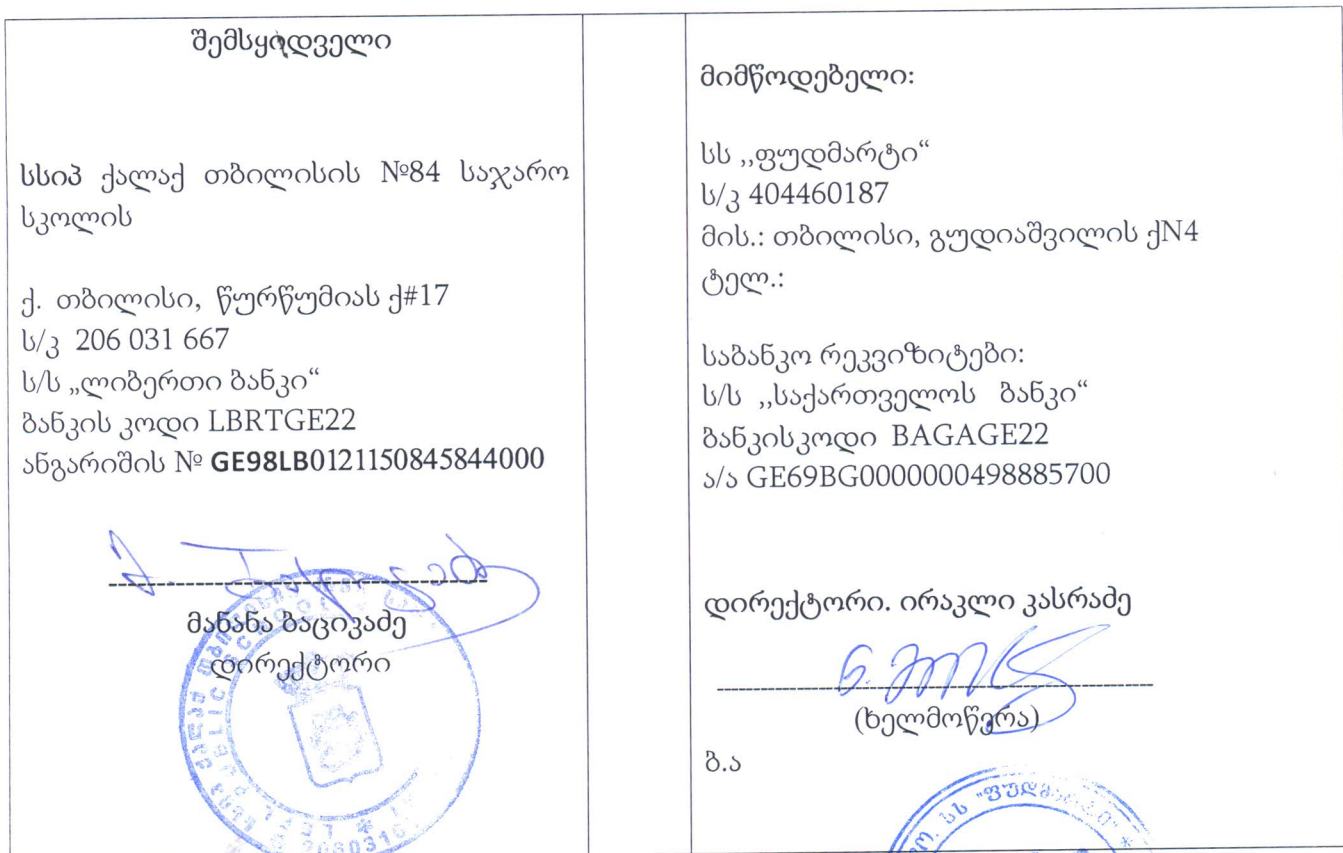 შემსყიდველი
სსიპ ქალაქ თბილისის №84 საჯარო
სკოლის
ქ. თბილისი, წურწუმიას ქ#17
ს/კ 206 031 667
ს/ს „ლიბერთი ბანკი“
ბანკის კოდი LBRTGE22
ანგარიშის № GE98LB0121150845844000
მანანა ბაციკაძე
დირექტორი
მიმწოდებელი:
სს ,,ფუდმარტი“
ს/კ 404460187
მის.: თბილისი, გუდიაშვილის ქN4
ტელ.:
საბანკო რეკვიზიტები:
ს/ს ,,საქართველოს ბანკი“
ბანკისკოდი BAGAGE22
ა/ა GE69BG0000000498885700
დირექტორი. ირაკლი კასრაძე
(ხელმოწერა)
ბ.ა